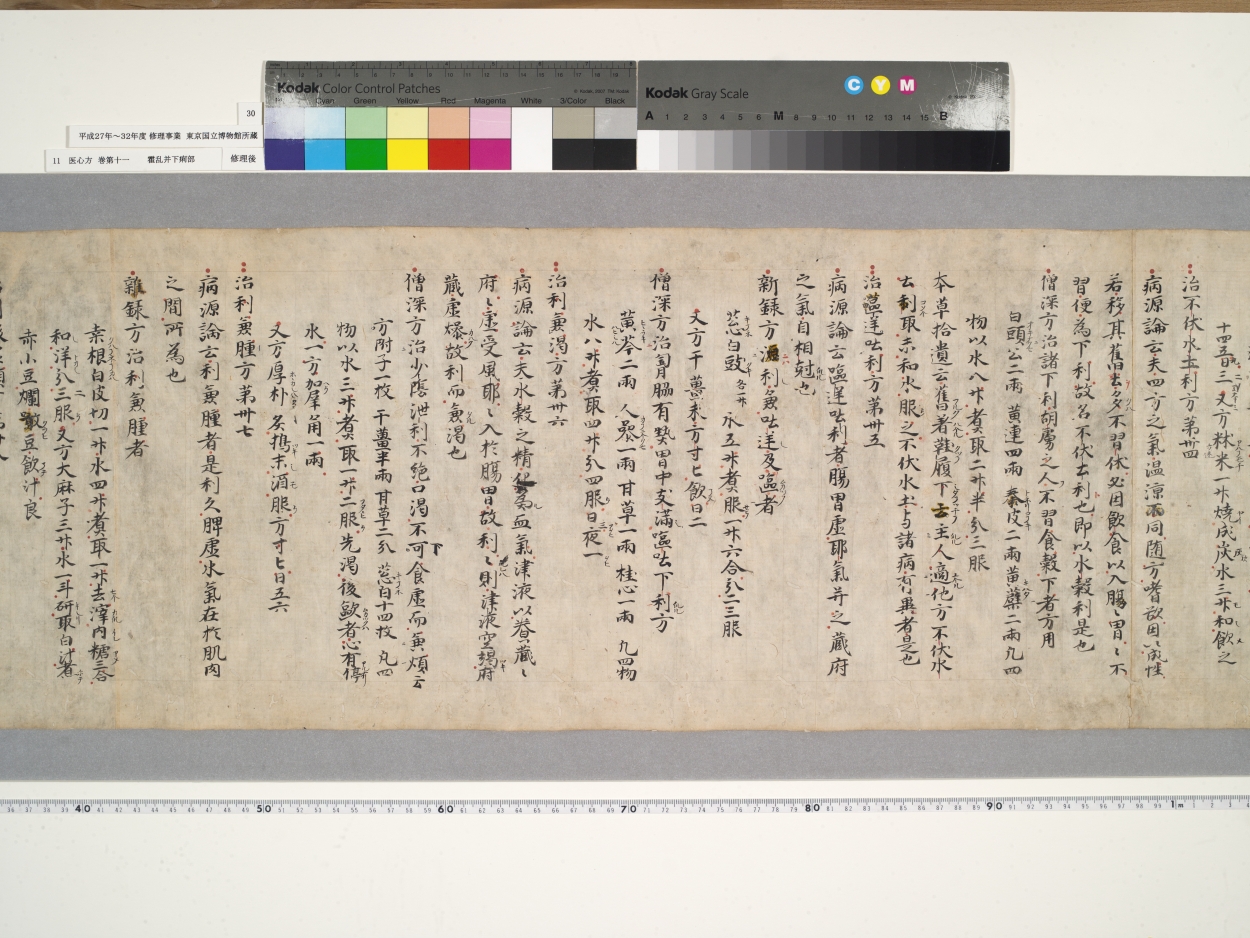 Kodak Color Control Patches
Cyan Green Yellow Red Magenta White 3/Color Black
Kodak Gray Scale
C Y M
A 1 2 3 4 5 6 M 8 9 10 11 12 13 14 15 B
30
平成27年～32年度 修理事業 東京国立博物館所蔵
11 医心方 巻第十一 霍乱并下痢部 修理後
十四五日三 又方秫米一升燒成炭水三升和飲之
治不伏水土利方第卅四
病源論云夫四方之氣温涼不同随方嗜欲因以成性
若移其舊土多不習伏必因飲食以入腸胃〻不
習便為下利故名不伏土利也即以水穀利是也
僧深方治諸下利胡虜之人不習食穀下者方用
白頭公二兩 黄連四兩 秦皮二兩黄蘗二兩凢四
物以水八升煮取二升半分三服
本草拾遺云舊著鞋履下土主人適他方不伏水
土利取示和水服之不伏水土与諸病有異者是也
治嘔逆吐利方第卅五
病源論云嘔逆吐利者腸胃虚耶氣并之蔵府
之氣自相尅也
新録方 利兼吐逆及嘔者
葱白豉 各一升 水五升煮服一升六合分二三服
又方干薑末方寸匕飲日二
僧深方治胃脇有熱胃中支滿嘔吐下利方
黄芩二兩 人参一兩甘草一兩 桂心一兩 凢四物
水八升煮取四升分四服日夜一
治利兼渇方第卅六
病源論云夫水穀之精化為血氣津液以養蔵〻
府〻虚受風耶〻入於腸胃故利〻則津液空竭府
蔵虚燥故利而兼渇也
僧深方治少陰泄利不絶口渇不可下食虚而兼煩云
方附子一枚 干薑半兩 甘草二分 葱白十四枚 凢四
物以水三升煮取一升二服先渇後歐者心有停
水一方加犀角一兩
又方厚朴炙搗末酒服方寸匕日五六
治利兼腫方第卅七
病源論云利兼腫者是利久脾虚水氣在於肌肉
之間所為也
雜録方治利兼腫者
桒根白皮切一升水四升煮取一升去滓内糖三合
和洋分三服 又方大麻子三升水一斗研取白汁煮
赤小豆爛 豆飲汁良
40 50 60 70 80 90 1m